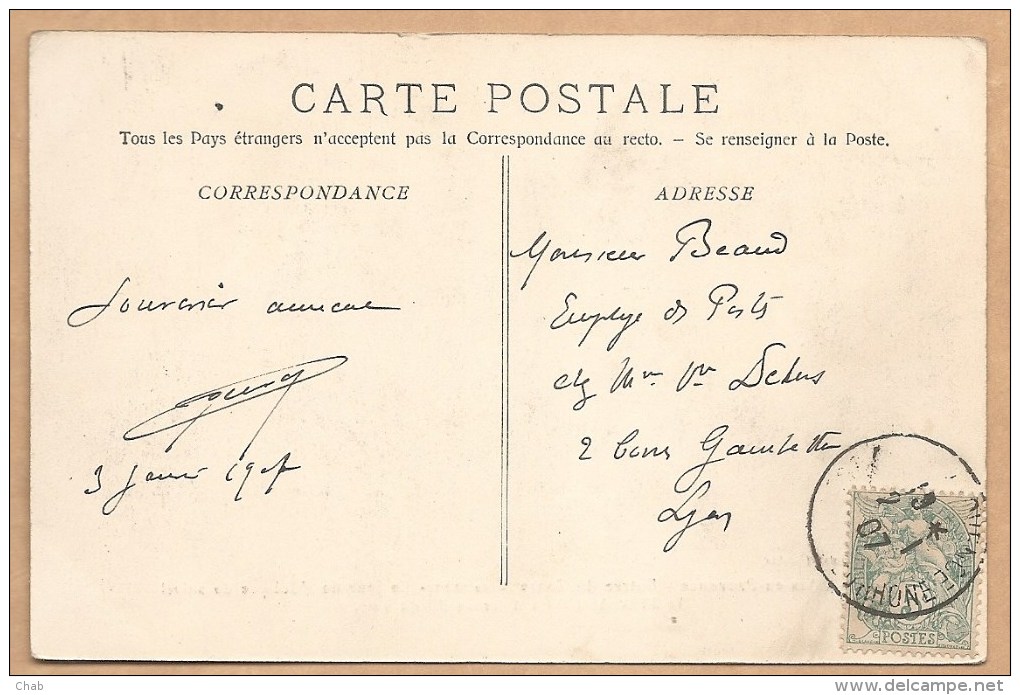 CARTE POSTALE
Tous les Pays étrangers n'acceptent pas la Correspondance au recto. — Se renseigner à la Poste.
CORRESPONDANCE
Souvenir amical
3 Janvi 1907
ADRESSE
Monsieur Beaud
Employe des Postes
chz Mme Vve
2 Cours Gambetta
Lyon
19 *
2 1
07
RHONE
POSTES
Chab
www.delcampe.net